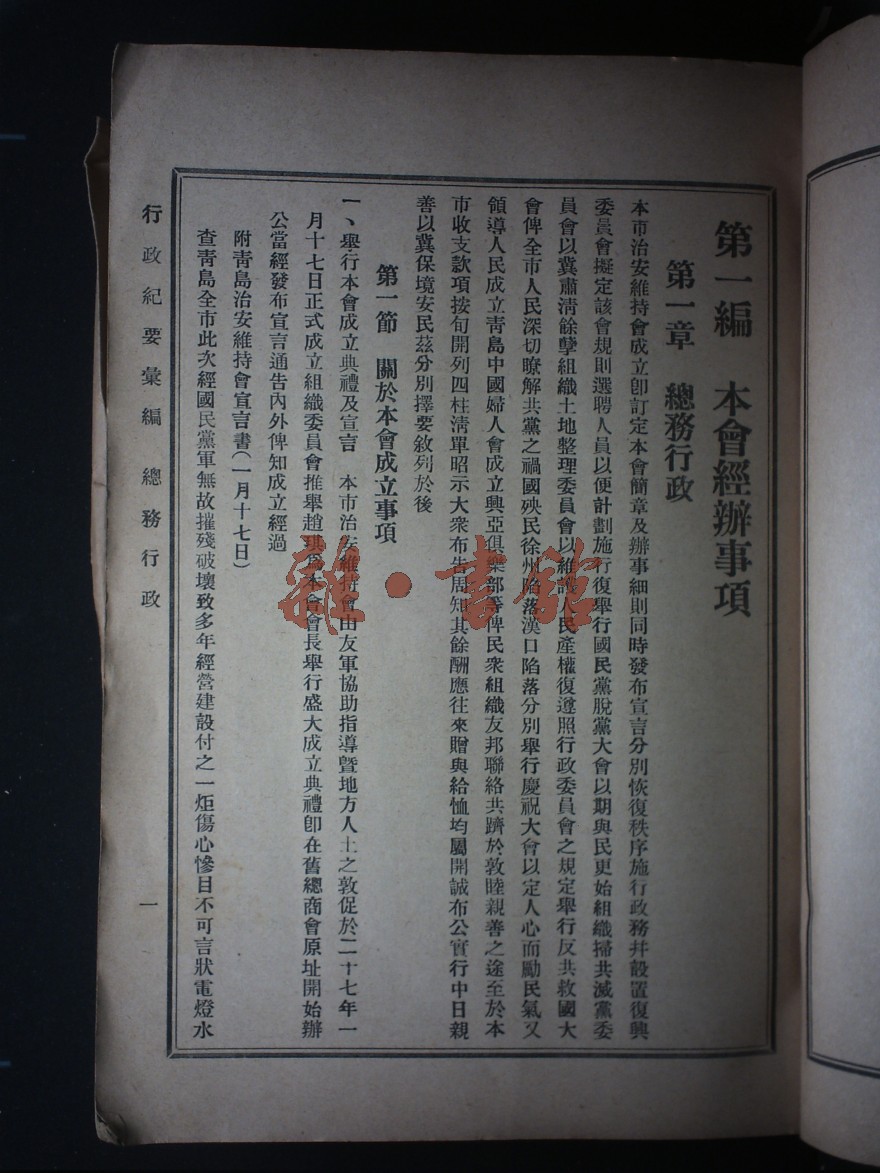 第一編　本會經辦事項
第一章　總務行政
本市治安維持會成立卽訂定本會簡章及辦事細則同時發布宣言分別恢復秩序施行政務幷設置復興
委員會擬定該會規則選聘人員以便計劃施行復舉行國民黨脫黨大會以期與民更始組織掃共滅黨委
員會以冀肅淸餘孽組織土地整理委員會以維護人民產權復遵照行政委員會之規定舉行反共救國大
會俾全市人民深切瞭解共黨之禍國殃民徐州陷落漢口陷落分別舉行慶祝大會以定人心而勵民氣又
領導人民成立靑島中國婦人會成立興亞俱樂部等俾民衆組織友邦聯絡共躋於敦睦親善之途至於本
市收支款項按旬開列四柱淸單昭示大衆布告周知其餘酬應往來贈與給恤均屬開誠布公實行中日親
善以冀保境安民茲分別擇要敘列於後
第一節　關於本會成立事項
一、舉行本會成立典禮及宣言　本市治安維持會由友軍協助指導曁地方人士之敦促於二十七年一
月十七日正式成立組織委員會推舉趙琪爲本會會長舉行盛大成立典禮卽在舊總商會原址開始辦
公當經發布宣言通告內外俾知成立經過
附靑島治安維持會宣言書(一月十七日)
查靑島全市此次經國民黨軍無故摧殘破壞致多年經營建設付之一炬傷心慘目不可言狀電燈水
行政紀要彙編　總務行政　一
雜·書館